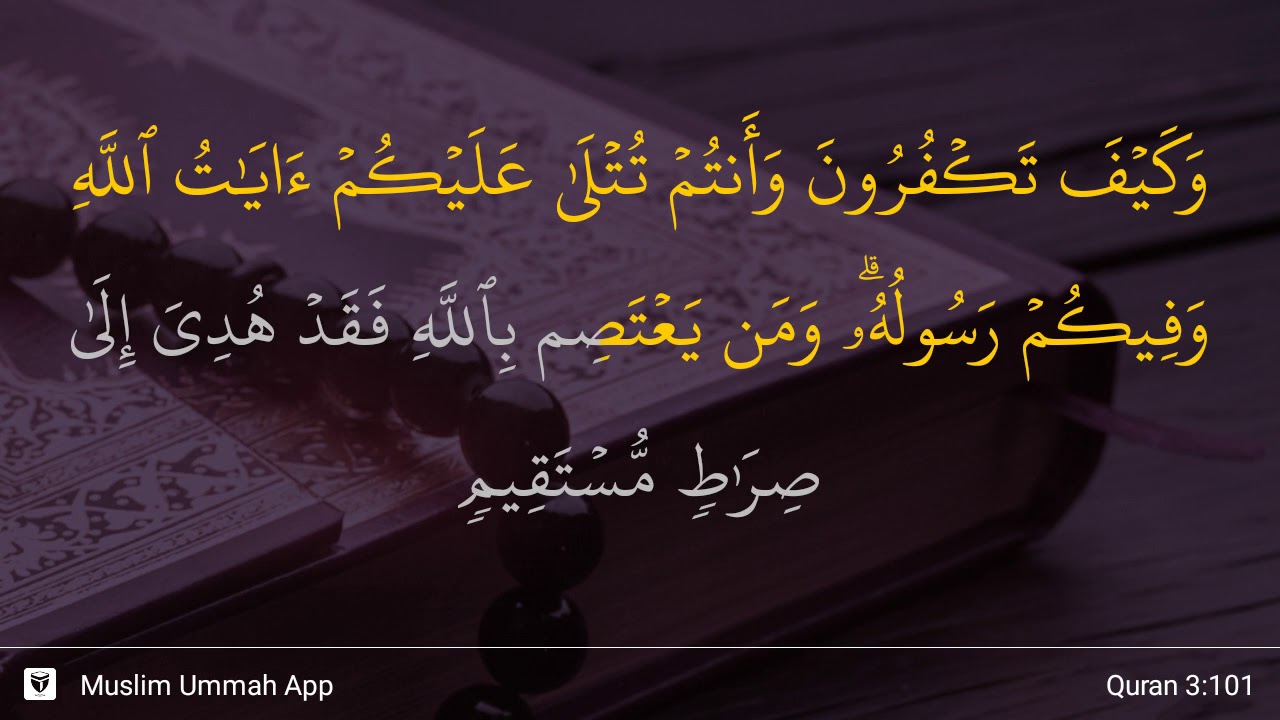 وَكَيۡفَ تَكۡفُرُونَ وَأَنتُمۡ تُتۡلَىٰ عَلَيۡكُمۡ ءَايَٰتُ ٱللَّهِ
وَفِيكُمۡ رَسُولُهُۥۗ وَمَن يَعۡتَصِم بِٱللَّهِ فَقَدۡ هُدِيَ إِلَىٰ
صِرَٰطٖ مُّسۡتَقِيمٖ
Muslim Ummah App
Quran 3:101